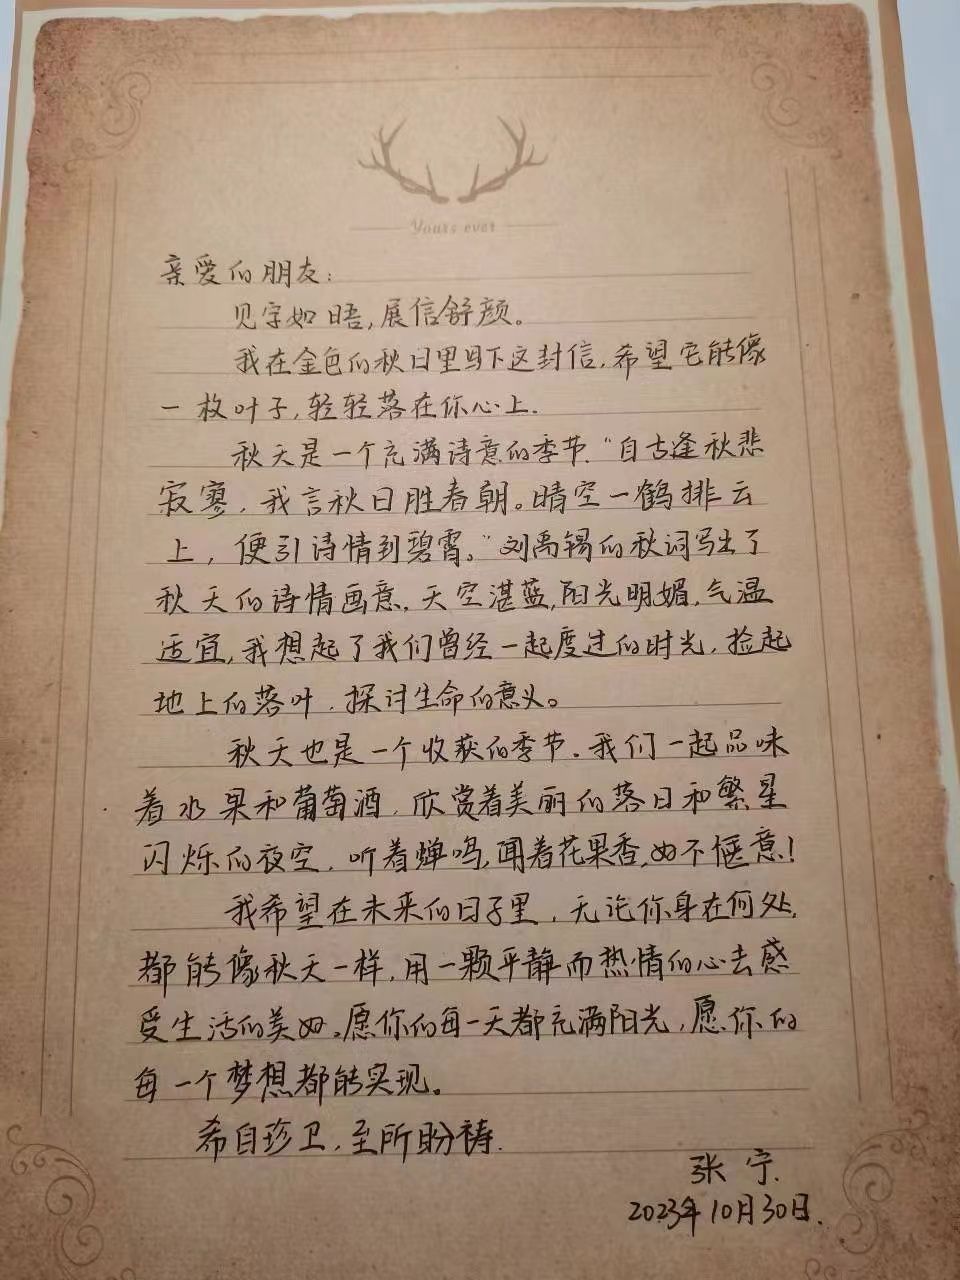 Yours ever
亲爱的朋友：
见字如晤,展信舒颜。
我在金色的秋日里写下这封信,希望它能像
一枚叶子,轻轻落在你心上.
秋天是一个充满诗意的季节.“自古逢秋悲
寂寥，我言秋日胜春朝。晴空一鹤排云
上，便引诗情到碧霄。”刘禹锡的秋词写出了
秋天的诗情画意.天空湛蓝,阳光明媚,气温
适宜,我想起了我们曾经一起度过的时光,捡起
地上的落叶,探讨生命的意义。
秋天也是一个收获的季节.我们一起品味
着水果和葡萄酒,欣赏着美丽的落日和繁星
闪烁的夜空,听着蝉鸣,闻着花果香,好不惬意!
我希望在未来的日子里,无论你身在何处,
都能像秋天一样,用一颗平静而热情的心去感
受生活的美好.愿你的每一天都充满阳光,愿你的
每一个梦想都能实现。
希自珍卫,至所盼祷.
张宁.
2023年10月30日.